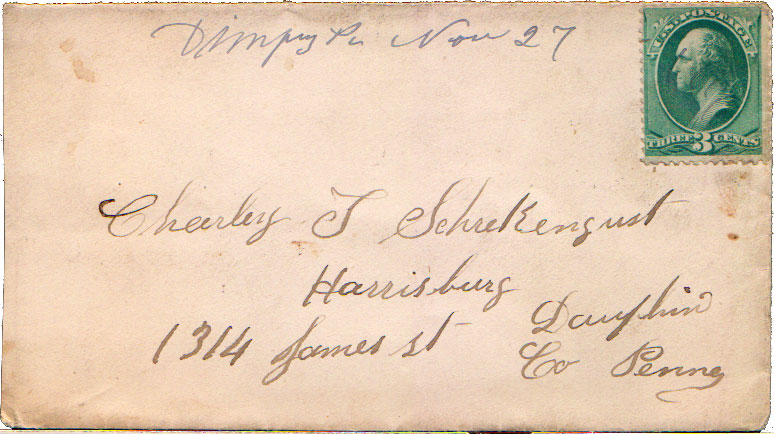 Dimpsy Pa Nov 27
U.S. POSTAGE
THREE 3 CENTS
Charley T Schrekengust
Harrisburg
1314 James st
Dauphin
Co Penna